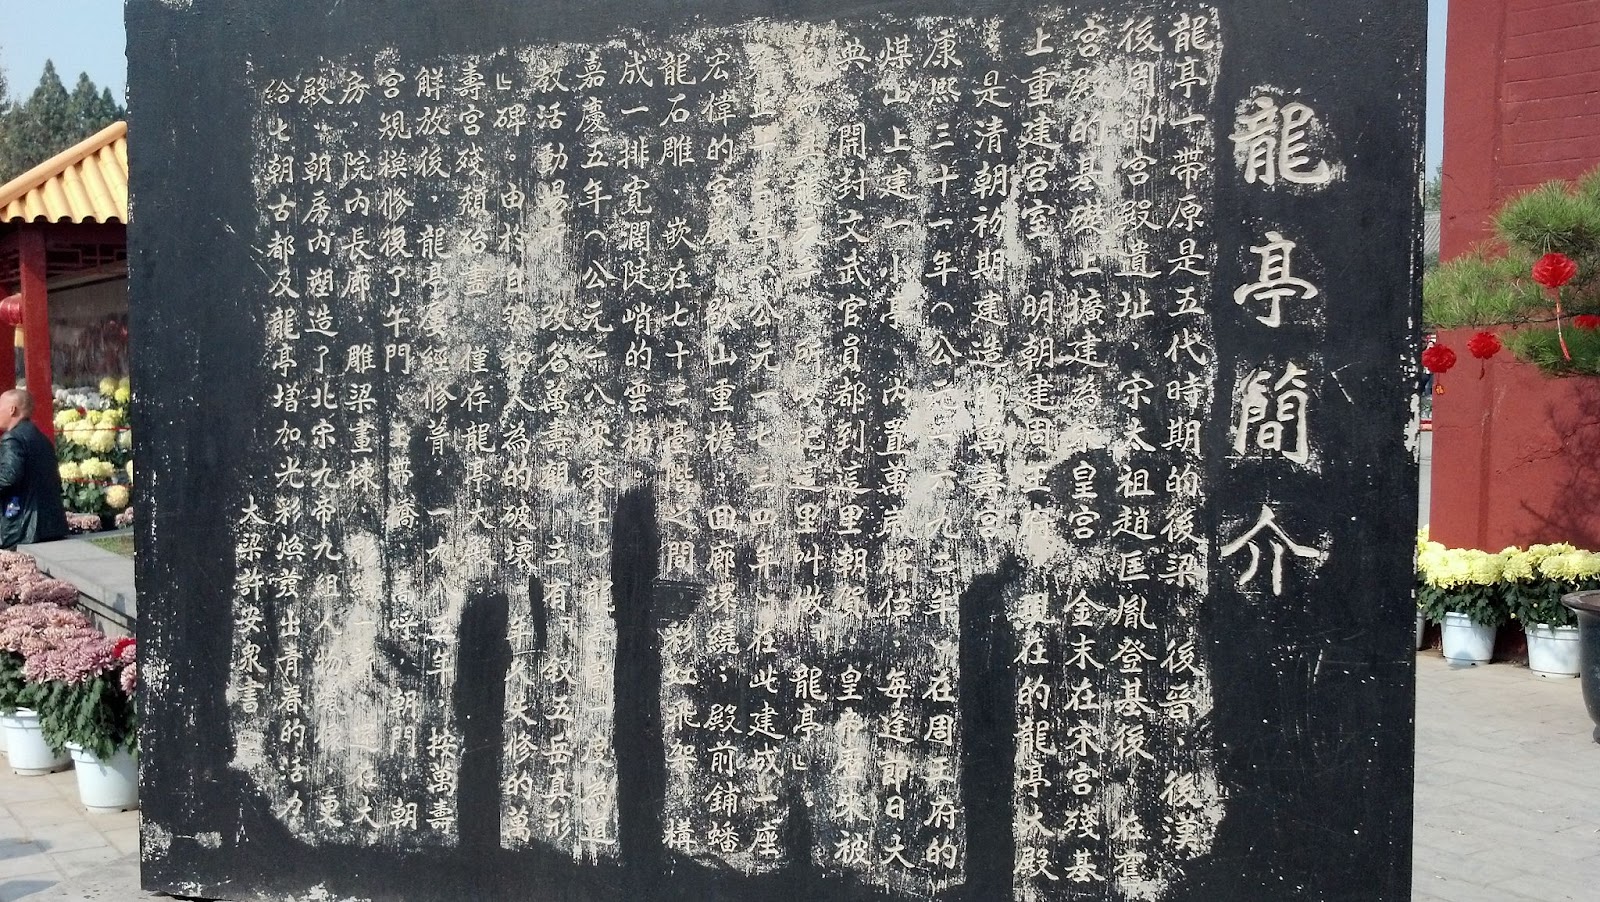 龍亭簡介
龍亭一帶原是五代時期的後梁、後晉、後漢
後周的宮殿遺址、宋太祖趙匡胤登基後、在舊
宮殿的基礎上擴建為 皇宮 金末在宋宮殘基
上重建宮室 明朝建周王府 現在的龍亭大殿
是清朝初期建造的萬壽宮
康熙三十一年(公元一六九二年)在周王府的
煤山上建一小亭、內置萬歲牌位 每逢節日大
典 開封文武官員都到這里朝賀.皇帝歷來被
為真龍天子 所以 這里叫做「龍亭」
正十二年(公元一七三四年)在此建成一座
宏偉的宮殿 山重檐 回廊環繞;殿前鋪蟠
龍石雕、嵌在七十二臺階之間 彩虹飛架 構
成一排寬闊陡峭的雲梯.
嘉慶五年(公元一八零零年)龍亭 一度為道
教活動場所 改名萬壽觀 立有「 五岳真形
」碑。由於自然和人為的破壞 年久失修的萬
壽宮殘頹殆盡 僅存龍亭大殿
解放後、龍亭屢經修葺.一九八 年、按萬壽
宮規模修復了午門 玉帶橋 嵩呼、朝門、朝
房、院內長廊、雕梁畫棟、 在大
殿、朝房內塑造了北宋九帝九組人物 、更
給七朝古都及龍亭增加光彩煥發出青春的活力
大梁許安泉書